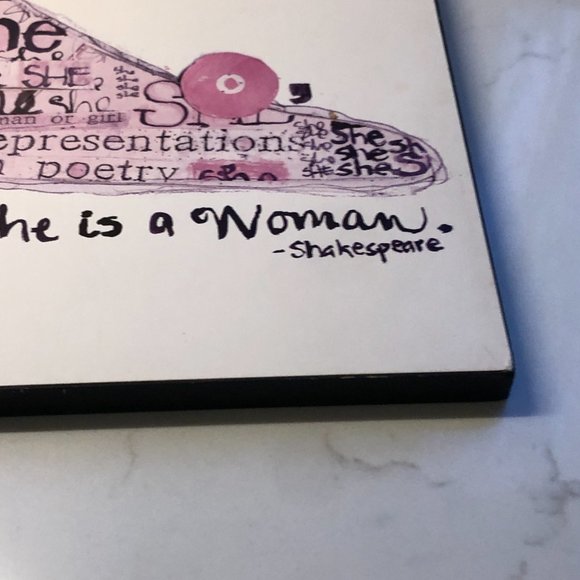 he
SHE,
she
SHE,
man or girl
epresentations
she she sh
she she
she she S
poetry she
he is a Woman.
-Shakespeare